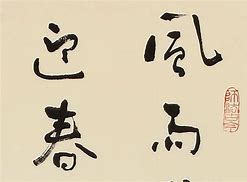 風雨
迎春